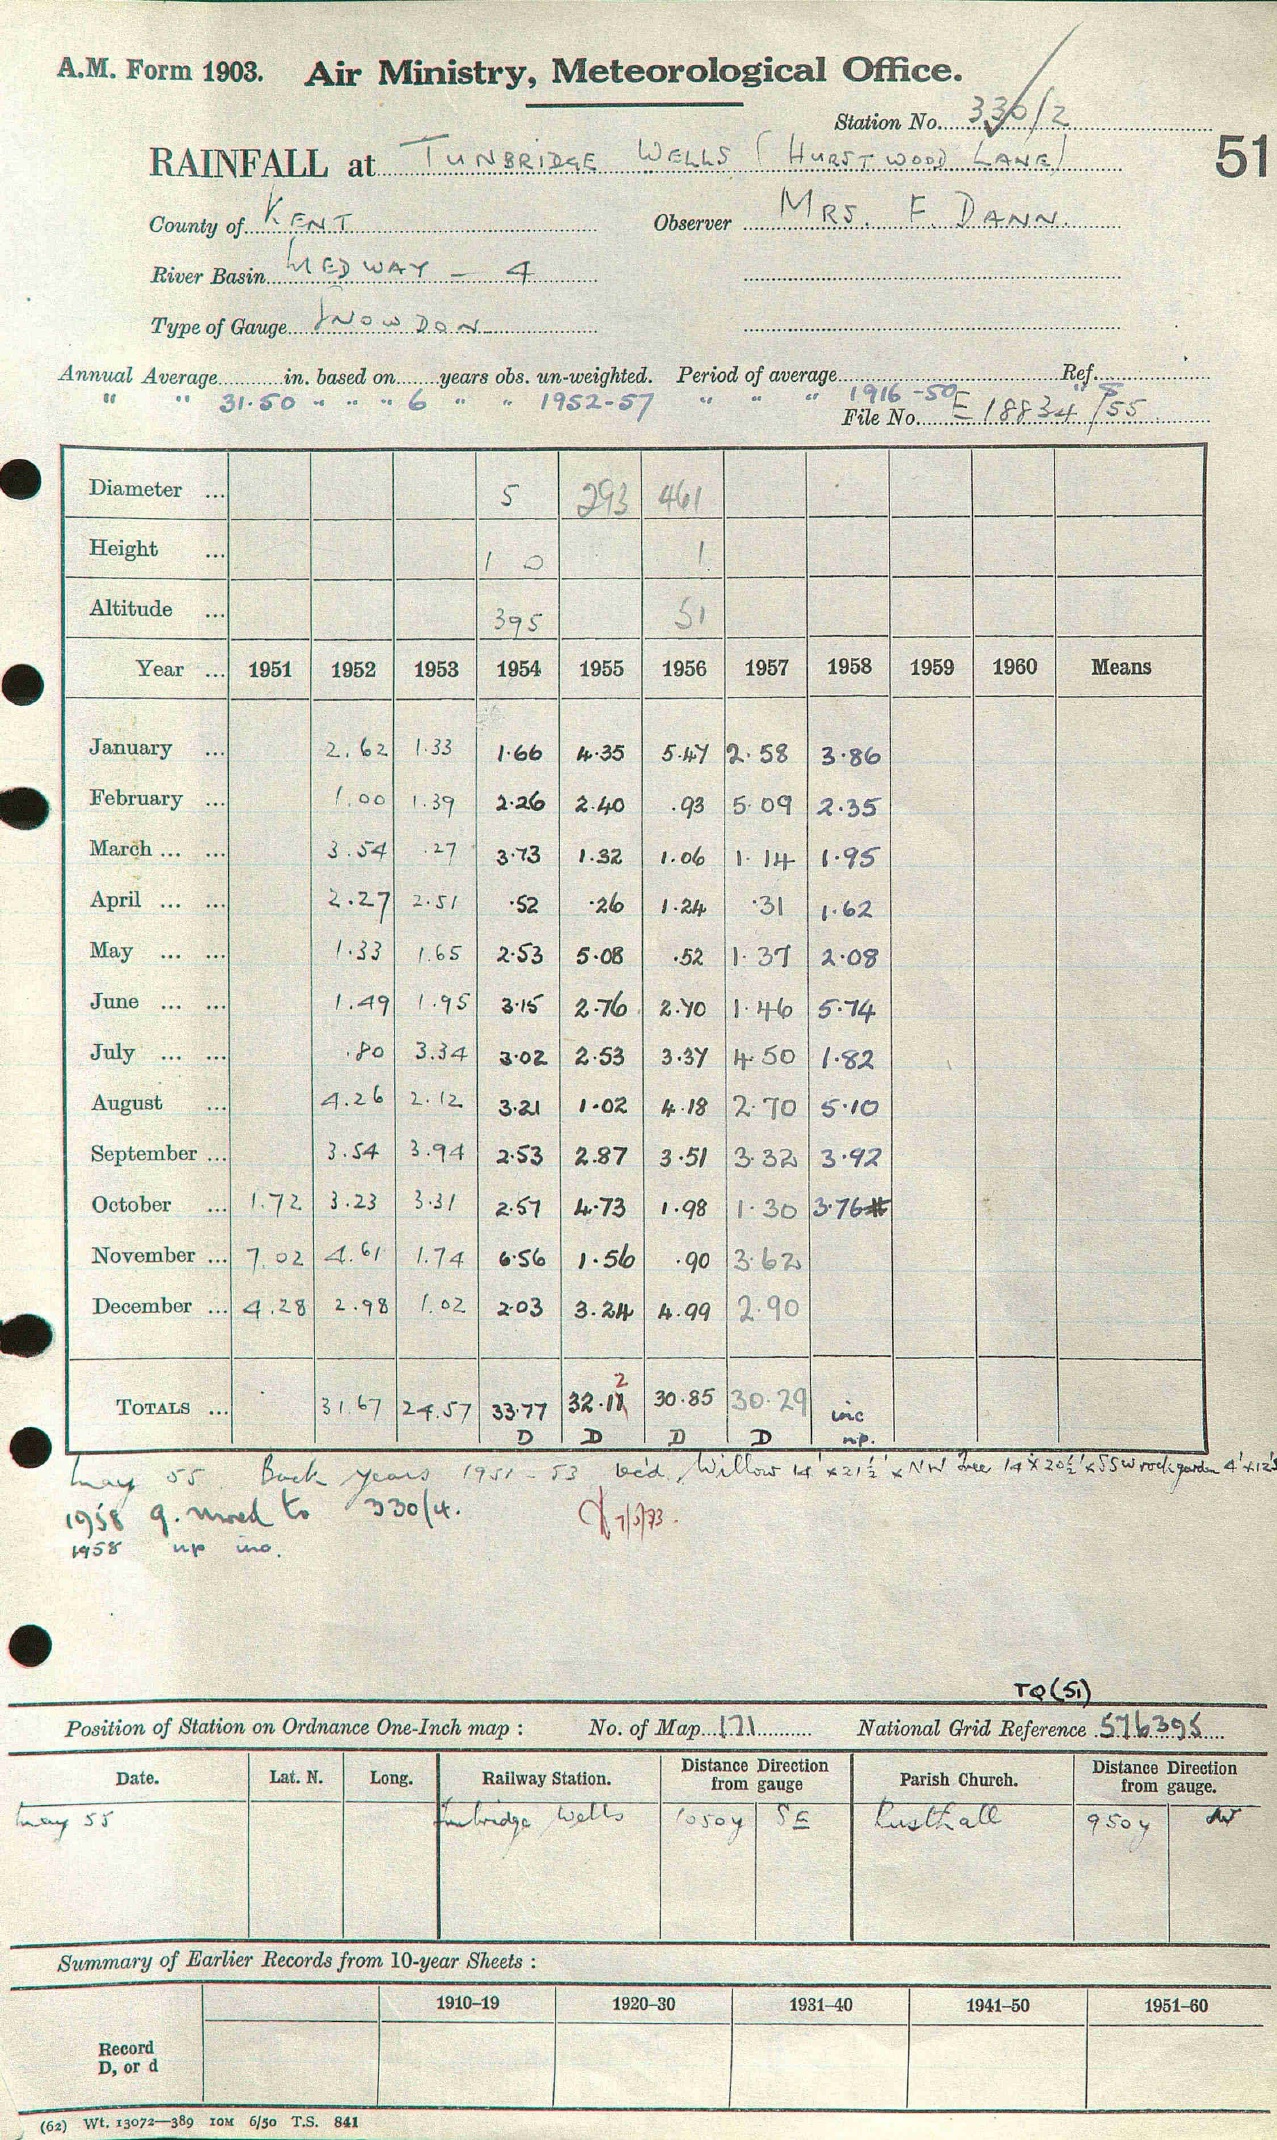 A.M. Form 1903. Air Ministry, Meteorological Office.
Station No. 330/2
RAINFALL at TUNBRIDGE WELLS (HURSTWOOD LANE) 51
County of KENT Observer MRS. F. DANN.
River Basin MEDWAY - 4
Type of Gauge SNOWDON
Annual Average in. based on years obs. un-weighted. Period of average Ref.
" " 31.50 " " " 6 " " 1952-57 " " " 1916-50 " 8
File No. E 18834/55
Diameter ... 5 293 461
Height ... 1 0 1
Altitude ... 395 51
Year ... 1951 1952 1953 1954 1955 1956 1957 1958 1959 1960 Means
January ... 2.62 1.33 1.66 4.35 5.47 2.58 3.86
February ... 1.00 1.39 2.26 2.40 .93 5.09 2.35
March ... ... 3.54 .27 3.73 1.32 1.06 1.14 1.95
April ... ... 2.27 2.51 .52 .26 1.24 .31 1.62
May ... ... 1.33 1.65 2.53 5.08 .52 1.37 2.08
June ... ... 1.49 1.95 3.15 2.76 2.70 1.46 5.74
July ... ... .80 3.34 3.02 2.53 3.37 4.50 1.82
August ... 4.26 2.12 3.21 1.02 4.18 2.70 5.10
September ... 3.54 3.94 2.53 2.87 3.51 3.32 3.92
October ... 1.72 3.23 3.31 2.57 4.73 1.98 1.30 3.76#
November ... 7.02 4.61 1.74 6.56 1.56 .90 3.62
December ... 4.28 2.98 1.02 2.03 3.24 4.99 2.90
2
TOTALS ... 31.67 24.57 33.77 32.11 30.85 30.29 inc
D D D D np.
May 55 Back years 1951-53 rec'd. Willow 14' x 21½' x NW Tree 14' x 20½' x SSW rock garden 4' x 12'S
1958 g. moved to 330/4. 7/3/73.
1958 np inc.
TQ(51)
Position of Station on Ordnance One-Inch map : No. of Map 171 National Grid Reference 576395
Date. Lat. N. Long. Railway Station. Distance Direction from gauge Parish Church. Distance Direction from gauge.
May 55 Tunbridge Wells 1050y SE Rusthall 950y
Summary of Earlier Records from 10-year Sheets :
1910-19 1920-30 1931-40 1941-50 1951-60
Record
D, or d
(62) Wt. 13072—389 10M 6/50 T.S. 841